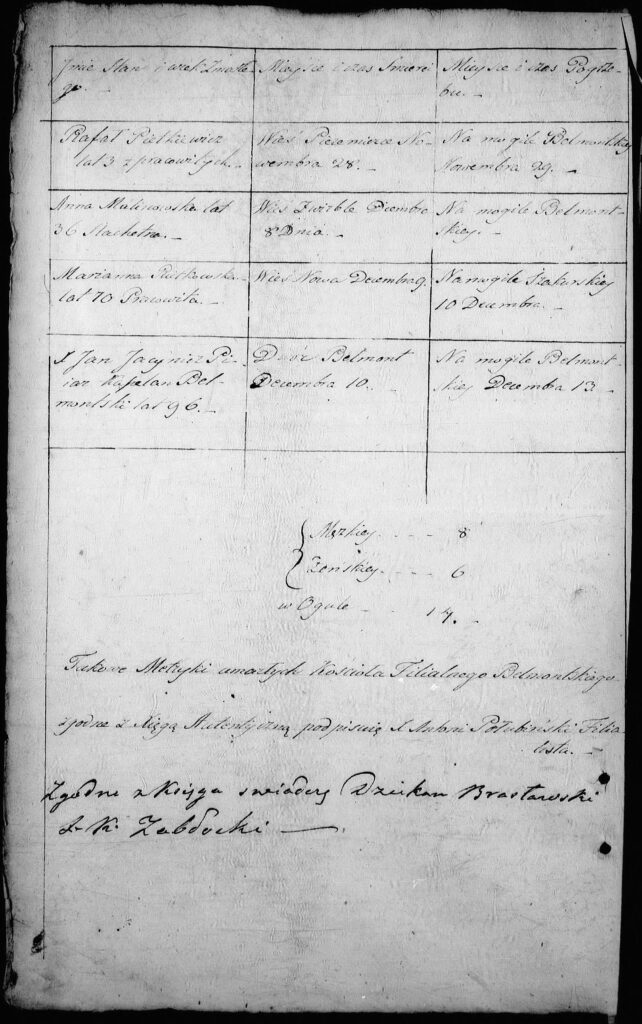 Imie Stan i wiek Zmarłe-
go.
Mieysce i czas Śmierci
Mieysce i czas Pogrze-
bu.
Rafał Pietkiewicz
lat 3 z pracowitych.
Wieś No-
wembra 28.
Na mogile Belmontskiey
Nowembra 29.
Anna Malinowska lat
36
Wieś Zwirble Decembra
8 Dnia.
Na mogile Belmont-
skiey.
Marianna
lat 70 Pracowita.
Wieś Nowa Decembra 9.
Na mogile
10 Decembra.
X Jan Jacynicz Pi-
iar Kapelan Bel-
montski lat 96.
Dwór Belmont
Decembra 10.
Na mogile Belmont-
skiey Decembra 13.
Męzkiey 8
Żeńskiey 6
w Ogule 14.
Takowe Metryki umarłych Kościoła Filialnego Belmontskiego
zgodne z Xięgą Autentyczną podpisuię X Antoni Połubiński Filia-
lista.
Zgodno z Księgą swiadczę Dziekan Brasławski
Zabłocki